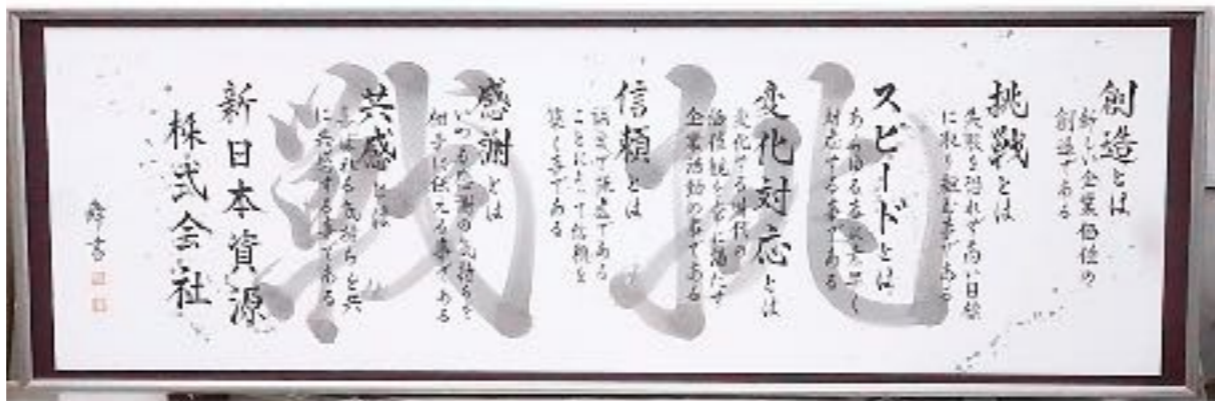 創造とは
新しい企業価値の
創造である
挑戦とは
失敗を恐れず高い目標
に取り組む事である
スピードとは
あらゆる事に素早く
対応する事である
変化対応とは
変化する時代の
価値観を常に満たす
企業活動の事である
信頼とは
誠実で
ことによって信頼を
築く事である
感謝とは
いつも感謝の気持を
相手に伝える事である
共感とは
喜ばれる気持ちを共
に共感する事である
新日本資源
株式会社
挑戦
書